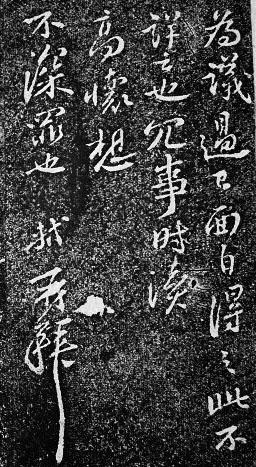 為議過已面白得之此不
詳云也冗事時瀆
高懷想
不深罪也軾再拜